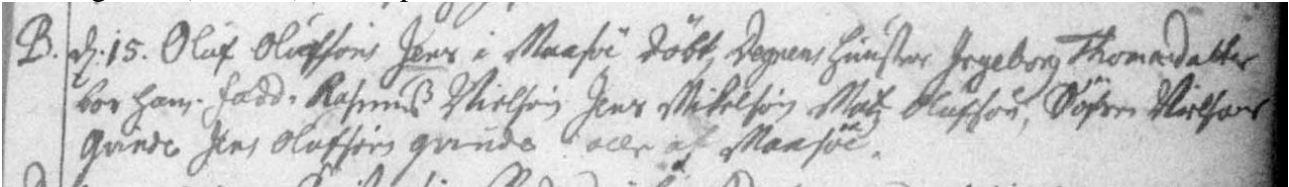 B. d. 15. Oluf Olufsøns Jens i Maasøe døbt, Degnens Hustrue Ingeborg Thomædatter
bar ham. Fadd. Rasmus Nielsøn Jens Mikelsøn Matz Olufsøn, Søfren Nielsøns
qvinde Jens Olufsøns qvinde alle af Maasøe.